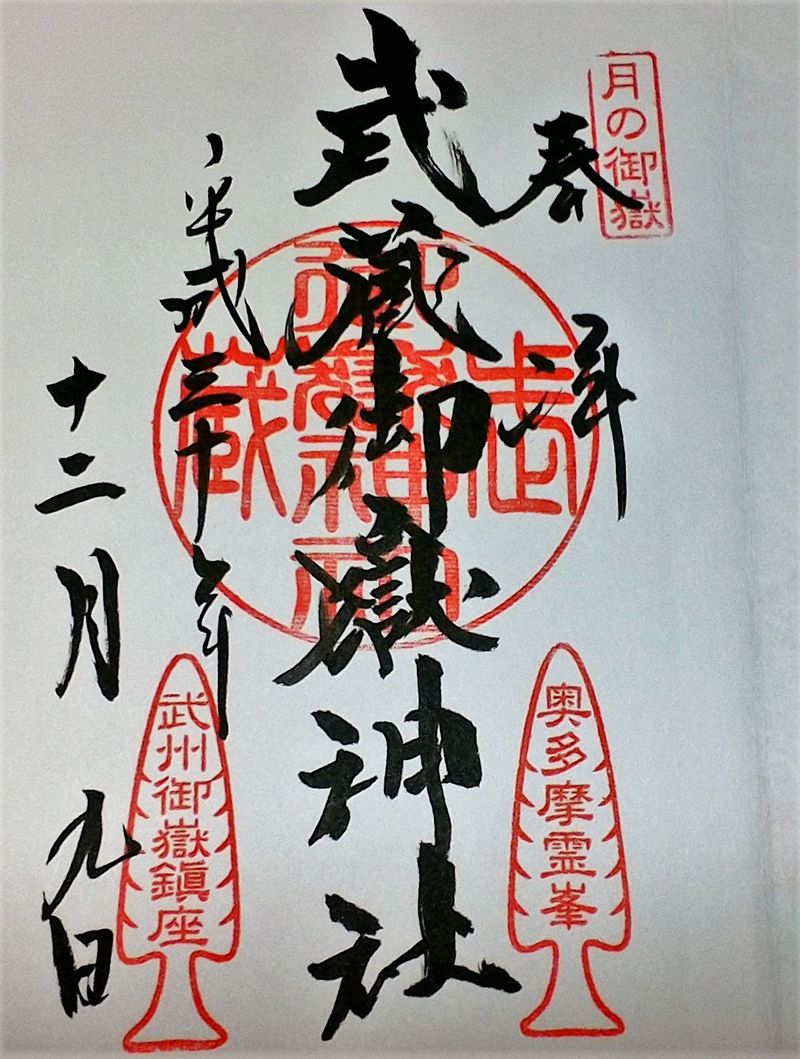 月の御嶽
奉拝
武蔵御嶽神社
平成三十年
十二月九日
奥多摩霊峯
武州御嶽鎮座
武蔵御嶽神社